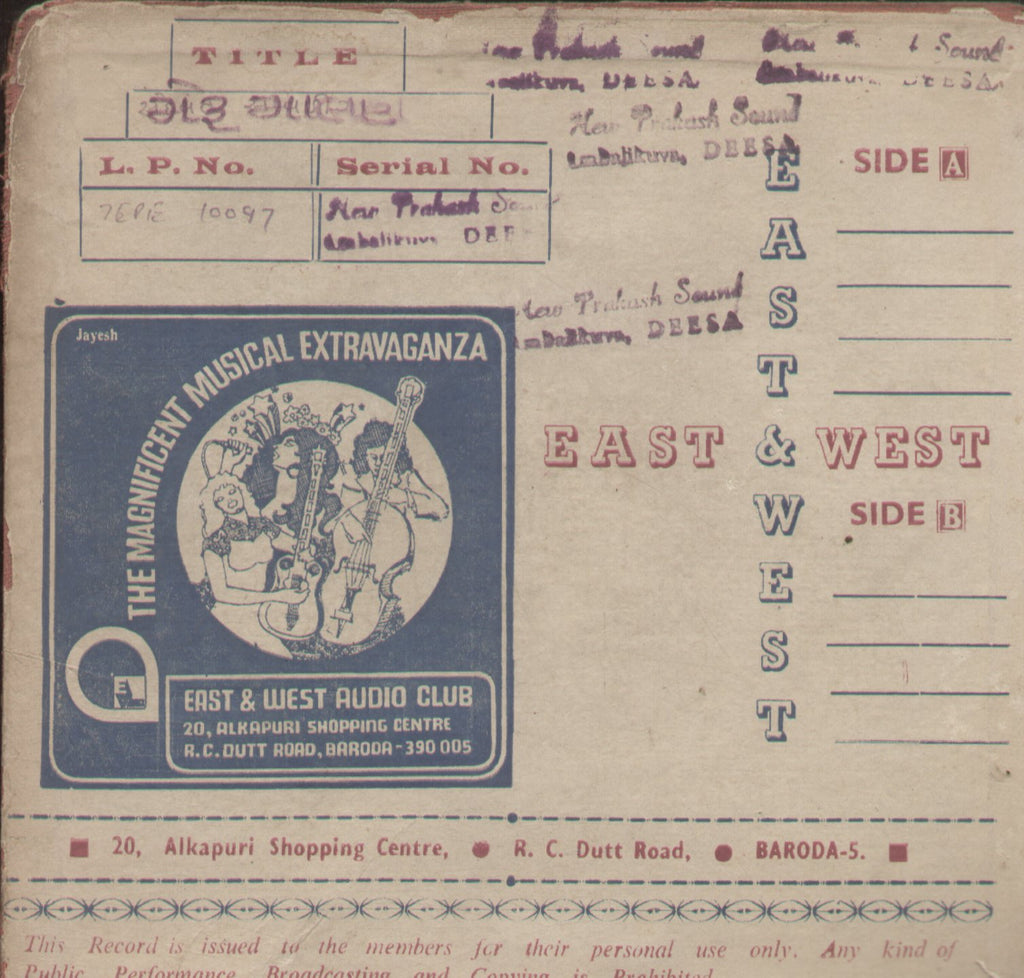 TITLE
New Prakash Sound
Ambalikuva, DEESA
Sound
DEESA
New Prakash Sound
Ambalikuva, DEESA
L. P. No.
Serial No.
10097
New Prakash
Ambalikuva
New Prakash Sound
Ambalikuva, DEESA
SIDE A
EAST & WEST
EAST WEST
SIDE B
Jayesh
THE MAGNIFICENT MUSICAL EXTRAVAGANZA
EAST & WEST AUDIO CLUB
20, ALKAPURI SHOPPING CENTRE
R. C. DUTT ROAD, BARODA - 390 005
20, Alkapuri Shopping Centre, R. C. Dutt Road, BARODA-5.
This Record is issued to the members for their personal use only. Any kind of
Public Performance Broadcasting and Copying is Prohibited